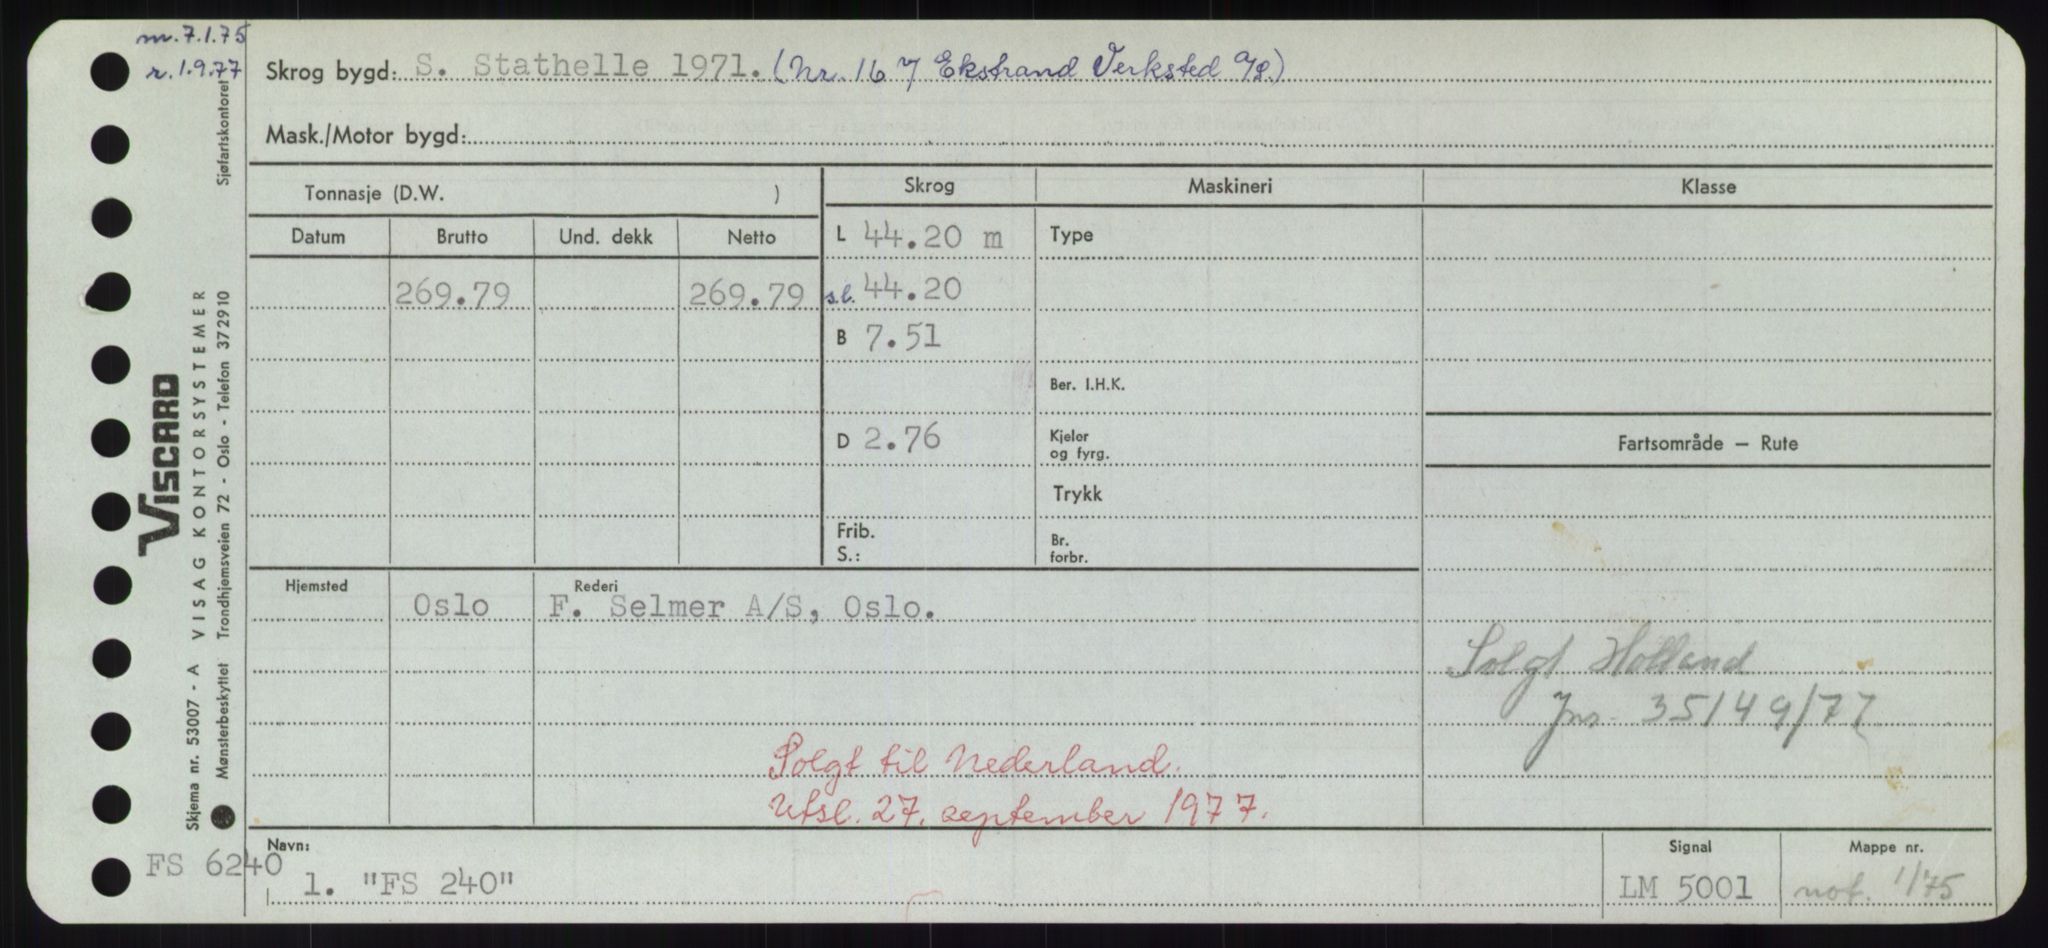 m. 7.1.75
r. 1.9.77
Skrog bygd: S. Stathelle 1971. (Nr. 167 Ekstrand Verksted A/S.)
Mask./Motor bygd:
Tonnasje (D.W. )
Skrog Maskineri Klasse
Datum Brutto Und. dekk Netto
L 44.20 m Type
269.79 269.79 s.l. 44.20
B 7.51
Ber. I.H.K.
D 2.76 Kjeler og fyrg. Fartsområde — Rute
Trykk
Frib.
S.: Br. forbr.
Hjemsted Oslo Rederi F. Selmer A/S, Oslo.
Solgt Holland
Jnr. 35149/77
Solgt til Nederland.
Utsl. 27. september 1977.
Navn: Signal Mappe nr.
FS 6240
1. "FS 240" LM 5001 not. 1/75
VISCARD
Skjema nr. 53007 - A VISAG KONTORSYSTEMER
Mønsterbeskyttet Trondhjemsveien 72 - Oslo - Telefon 372910 Sjøfartskontoret